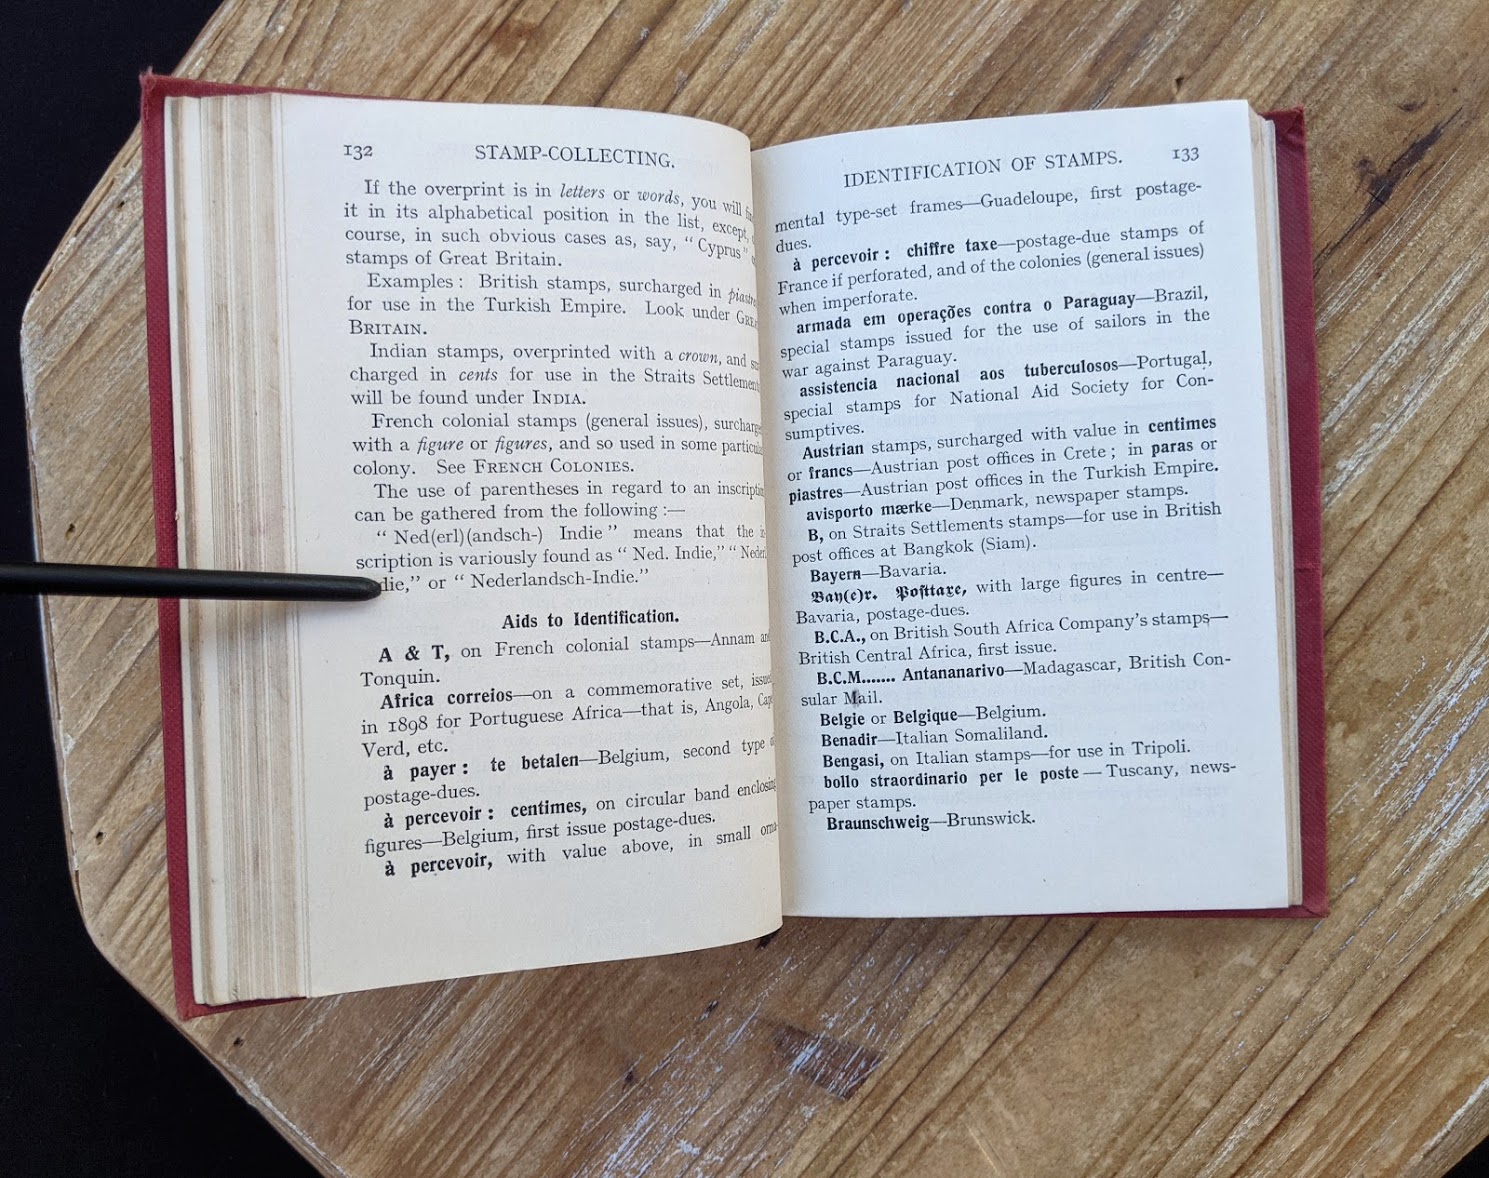 132 STAMP-COLLECTING.
If the overprint is in letters or words, you will
it in its alphabetical position in the list, except,
course, in such obvious cases as, say, “ Cyprus”
stamps of Great Britain.
Examples : British stamps, surcharged in
for use in the Turkish Empire. Look under
BRITAIN.
Indian stamps, overprinted with a crown, and
charged in cents for use in the Straits
will be found under INDIA.
French colonial stamps (general issues),
with a figure or figures, and so used in some
colony. See FRENCH COLONIES.
The use of parentheses in regard to an
can be gathered from the following :—
“ Ned(erl)(andsch-) Indie ” means that the
scription is variously found as “ Ned. Indie,” “
or “ Nederlandsch-Indie.”
Aids to Identification.
A & T, on French colonial stamps—Annam
Tonquin.
Africa correios—on a commemorative set,
in 1898 for Portuguese Africa—that is, Angola,
Verd, etc.
à payer : te betalen—Belgium, second type
postage-dues.
à percevoir : centimes, on circular band enclosing
figures—Belgium, first issue postage-dues.
à percevoir, with value above, in small orna-
IDENTIFICATION OF STAMPS. 133
mental type-set frames—Guadeloupe, first postage-
dues.
à percevoir : chiffre taxe—postage-due stamps of
France if perforated, and of the colonies (general issues)
when imperforate.
armada em operações contra o Paraguay—Brazil,
special stamps issued for the use of sailors in the
war against Paraguay.
assistencia nacional aos tuberculosos—Portugal,
special stamps for National Aid Society for Con-
sumptives.
Austrian stamps, surcharged with value in centimes
or francs—Austrian post offices in Crete ; in paras or
piastres—Austrian post offices in the Turkish Empire.
avisporto mærke—Denmark, newspaper stamps.
B, on Straits Settlements stamps—for use in British
post offices at Bangkok (Siam).
Bayern—Bavaria.
Bay(e)r. Posttaxe, with large figures in centre—
Bavaria, postage-dues.
B.C.A., on British South Africa Company’s stamps—
British Central Africa, first issue.
B.C.M....... Antananarivo—Madagascar, British Con-
sular Mail.
Belgie or Belgique—Belgium.
Benadir—Italian Somaliland.
Bengasi, on Italian stamps—for use in Tripoli.
bollo straordinario per le poste—Tuscany, news-
paper stamps.
Braunschweig—Brunswick.